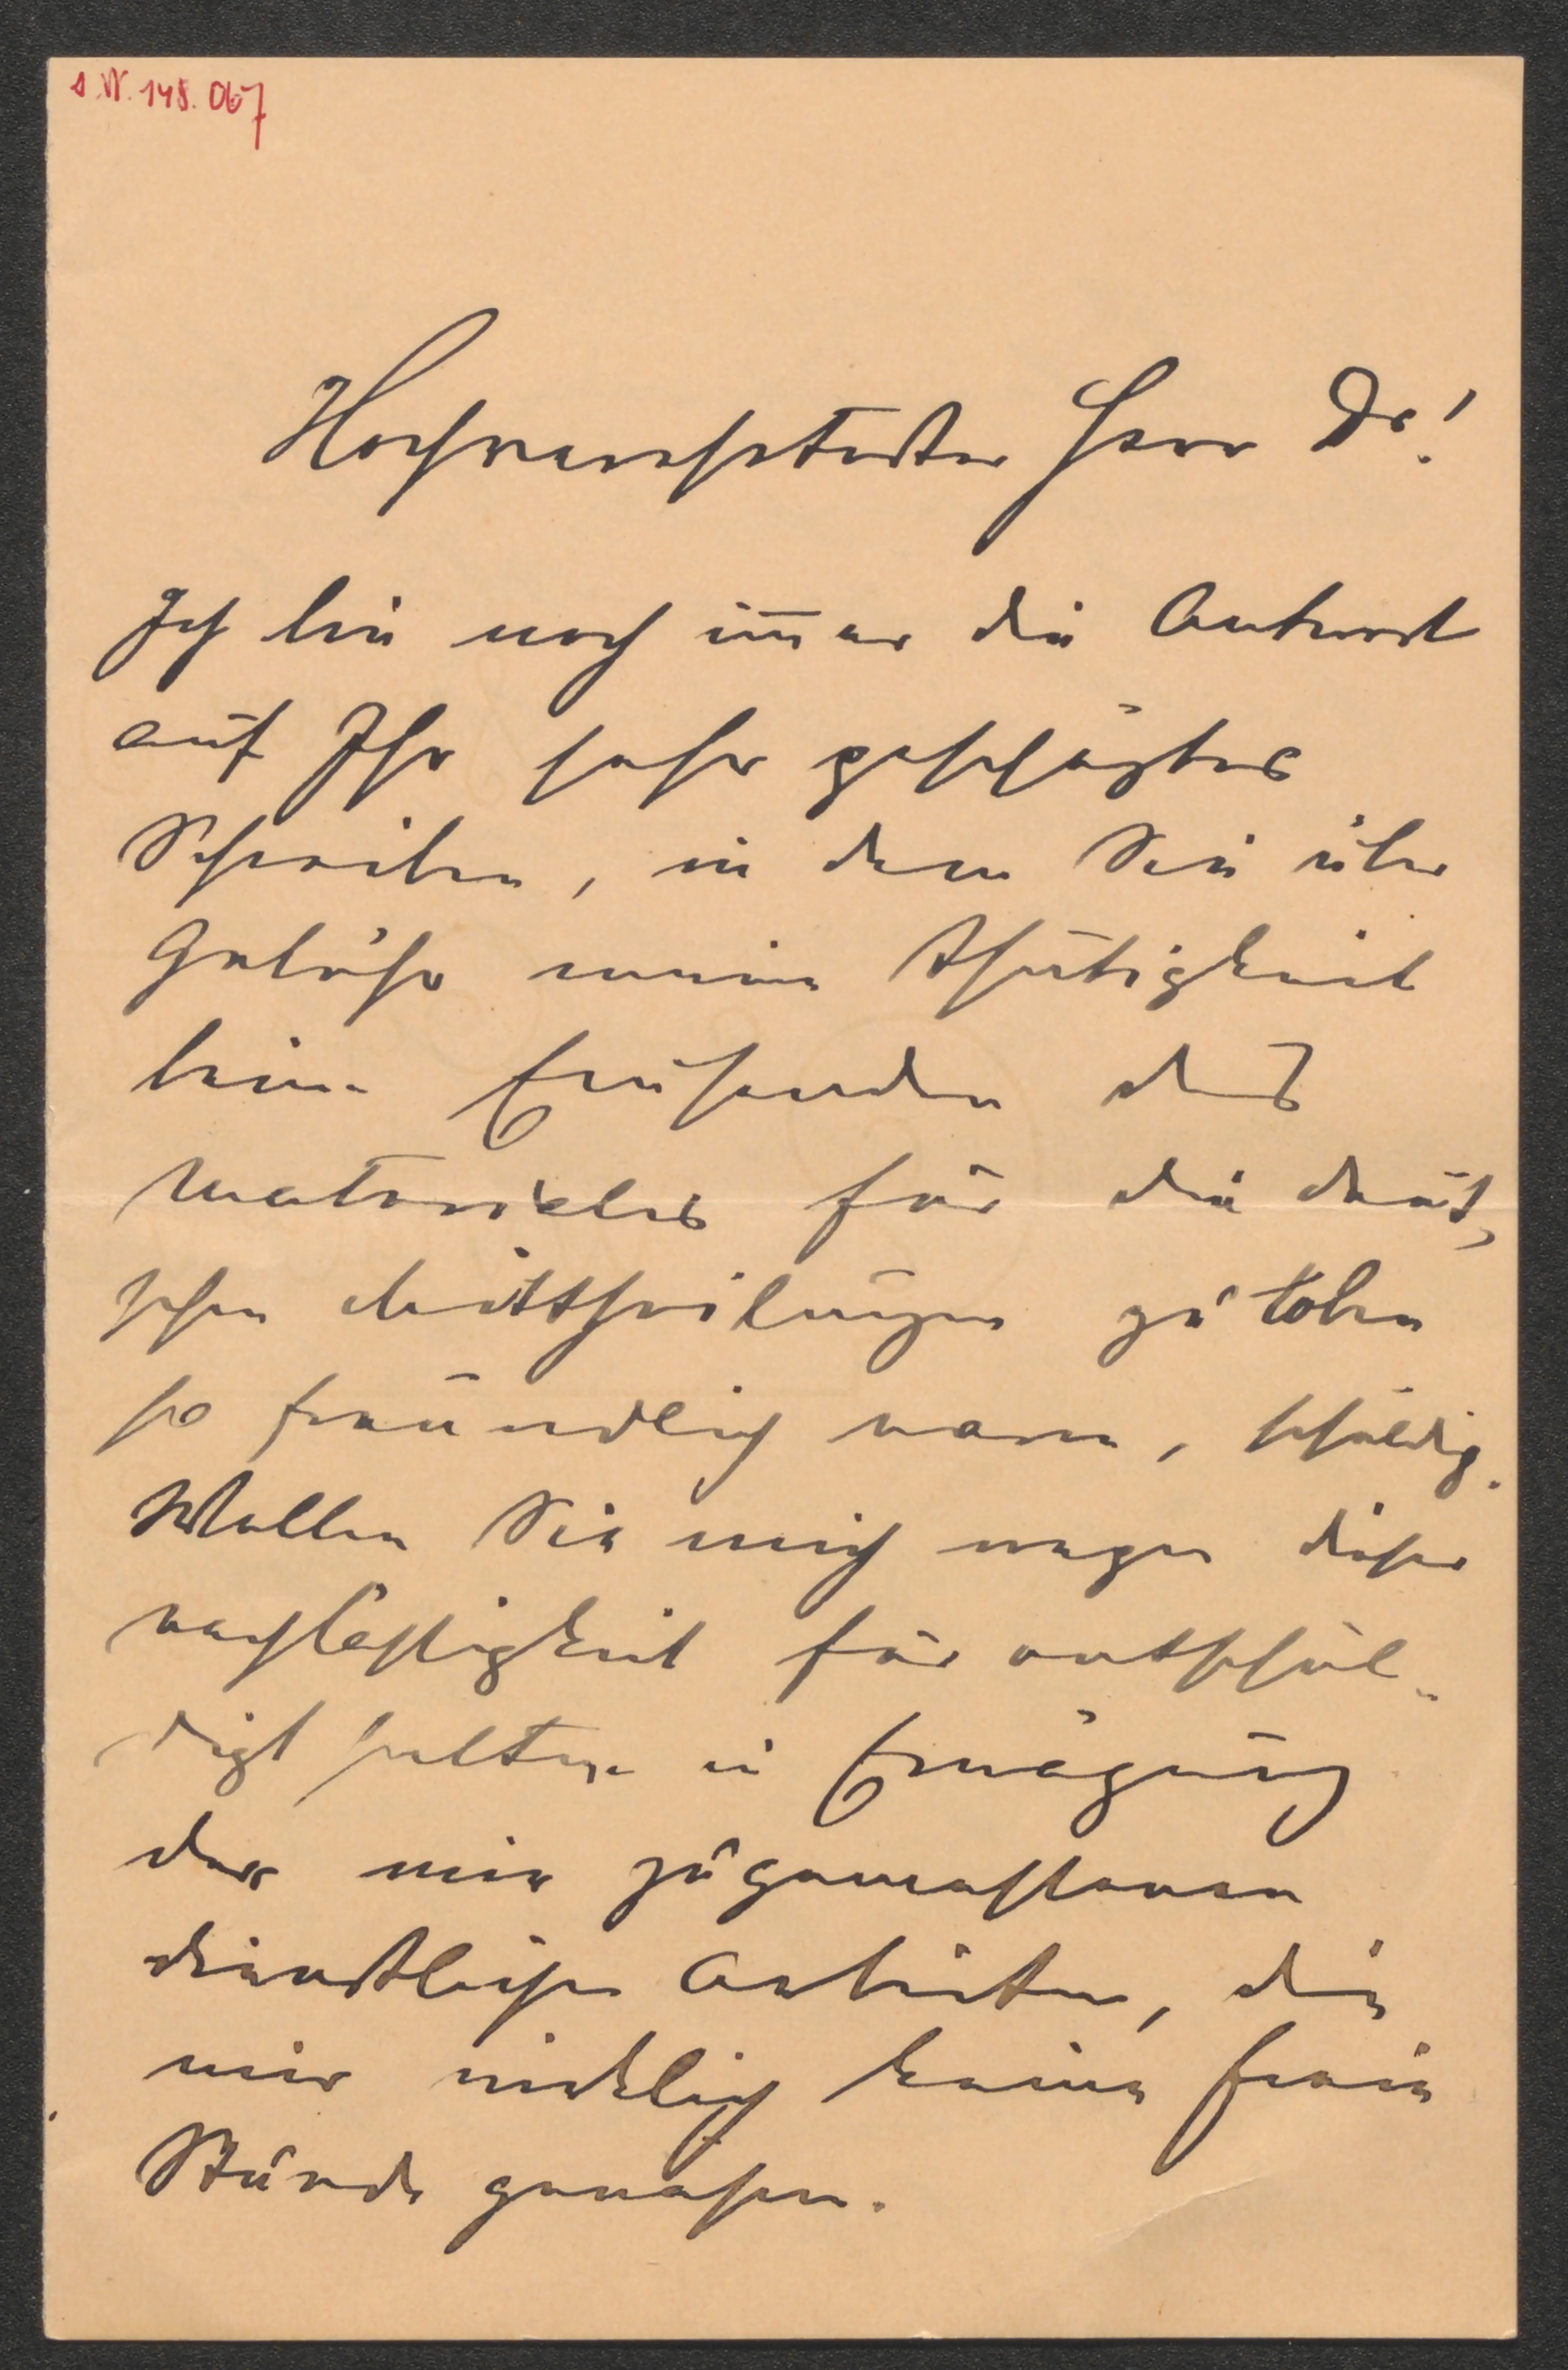 I.N. 148.067
Hochverehrtester Herr Dr!
Ich bin noch im̅er die Antwort
auf Ihr sehr geschäztes
Schreiben, in dem Sie über
Gebühr meine Thätigkeit
beim Einsenden des
Materieles für die deut,
schen Mittheilungen zu loben
so freundlich waren, schuldig.
Wollen Sie mich wegen dieser
Nachläßigkeit für entschul„
digt halten in Erwägung
der mir zugemessenen
dienstlichen Arbeiten, die
mir wirklich keine freie
Stunde gewähren.